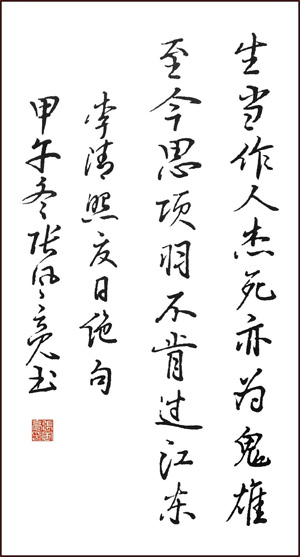 生当作人杰死亦为鬼雄
至今思项羽不肯过江东
李清照夏日绝句
甲午冬张亮书